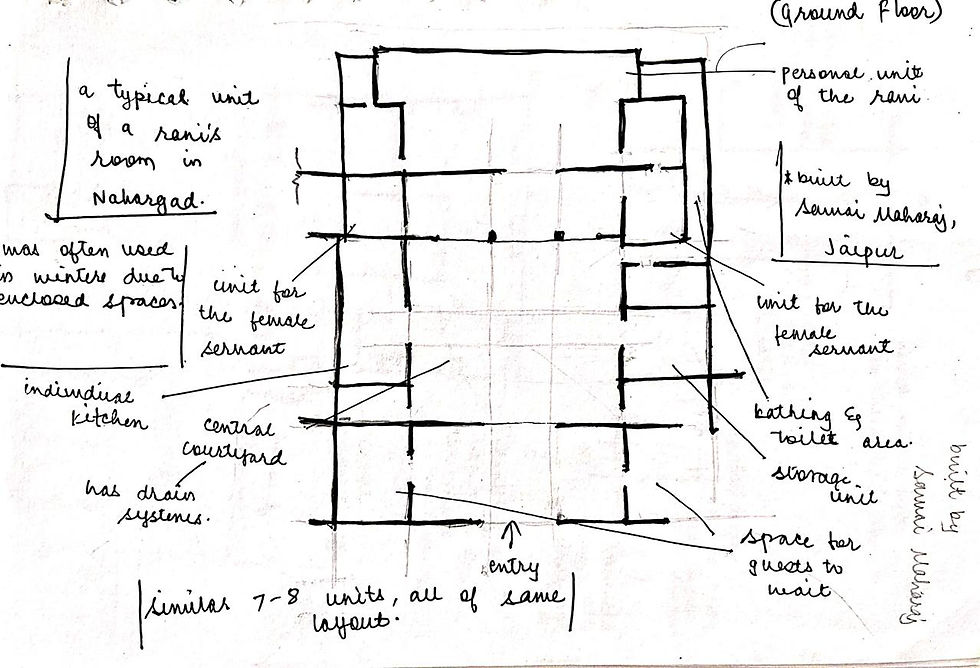 (Ground Floor)
a typical unit
of a rani's
room in
Nahargad.
was often used
in winters due to
enclosed spaces.
personal unit
of the rani
* built by
Sawai Maharaj,
Jaipur
unit for
the female
servant
unit for the
female
servant
individual
kitchen
central
courtyard
has drain
systems.
bathing &
toilet area.
storage
unit
space for
guests to
wait
entry
similar 7-8 units, all of same
layout.
built by
Sawai Maharaj